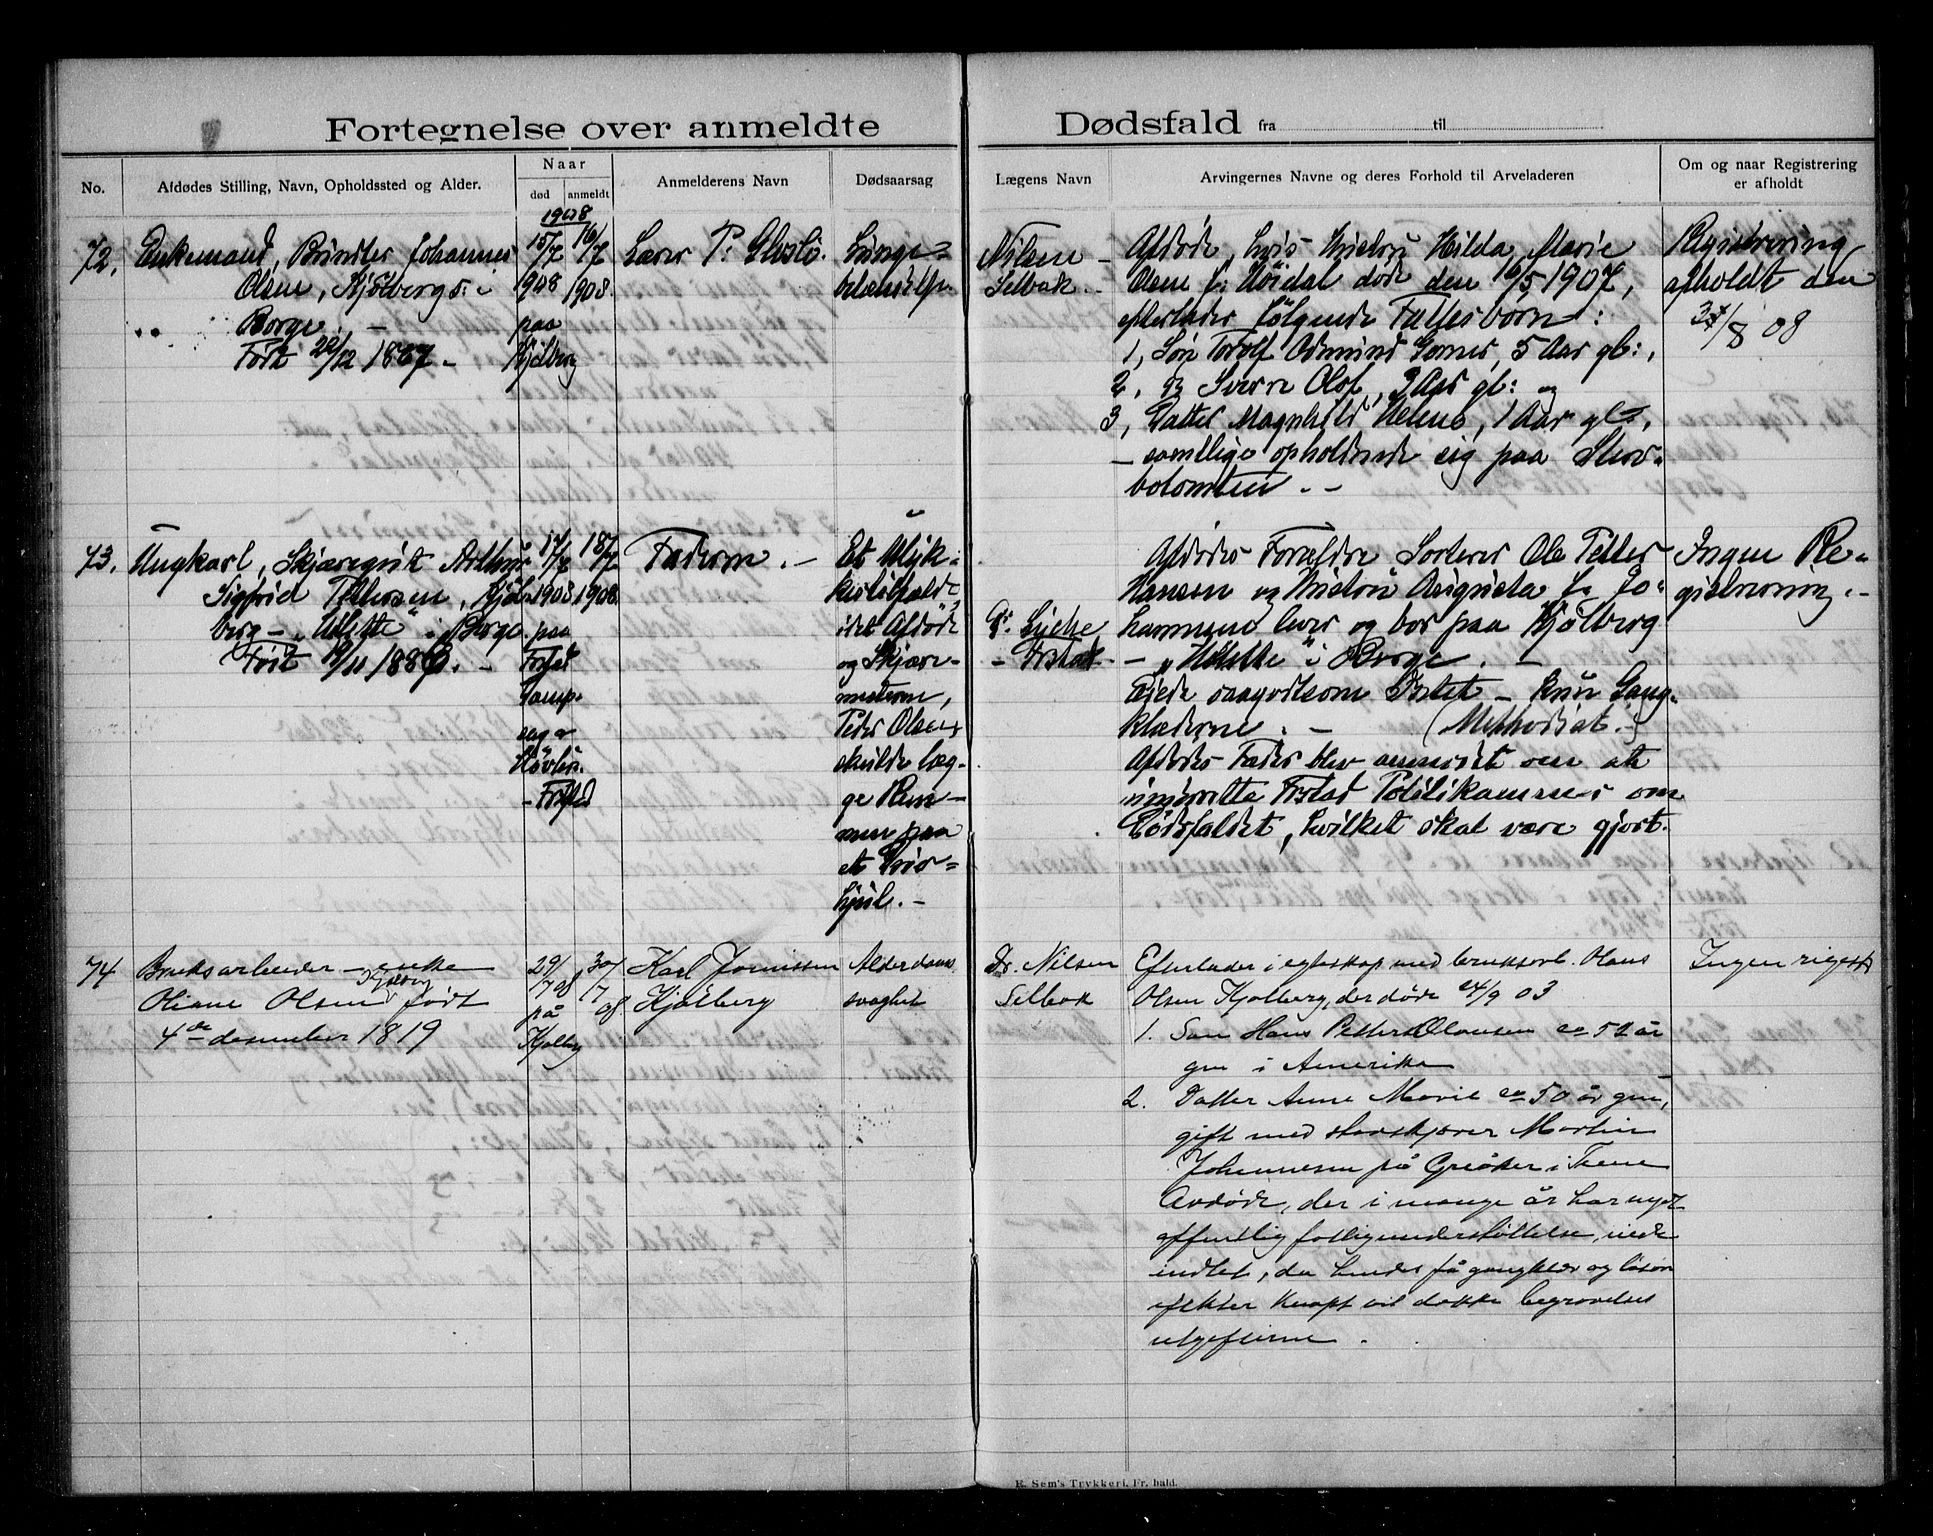 Fortegnelse over anmeldte Dødsfald fra til
No.
Afdødes Stilling, Navn, Opholdssted og Alder.
Naar
død
anmeldt
Anmelderens Navn
Dødsaarsag
Lægens Navn
Arvingernes Navne og deres Forhold til Arveladeren
Om og naar Registrering
er afholdt
1908
72.
Enkemand, Johannes
Olsen, Kjølbergs: i
Borge. –
Født 1867. –
15/7
1908
paa
Kjølberg
16/7
1908.
Lærer P.
Lunge=
betændelse
Nilsen –
Selbak. –
Afdøde, hvis Hustru Hilda Marie
Olsen f: Høidal døde den 16/5 1907,
efterlader følgende Fællesbørn:
1, Søn Torolf Odmund Gomes, 5 Aar gl:,
2, og Sverre Olof, Aar gl: og
3, Datter Magnhild Helene, 1 Aar gl:,
– samtlige opholdende sig paa
. –
Registrering
afholdt den
/8 08
73.
Ungkarl, Skjæregut Arthur
Sigfrid Pettersen, Kjøl-
berg – i Borge.
Født /11 188 . –
17/7
1908
paa
Fr.stad
Damp-
sag &
Høvleri
– Fr.stad
18/7
1908.
Faderen. –
Et Ulyk-
kestilfælde
idet Afdøde
og Skjære-
mesteren,
Peder Olsen,
skulde læg-
ge Rem-
men paa
et Driv=
hjul. –
Dr. Lyche
– Fr.stad. –
Afdødes Forældre Sorterer Ole Petter
Hansen og Hustru Augusta f. Jo-
hannesen lever og bor paa Kjølberg
– i Borge. –
Eiede saagodtsom Intet – kun Gang-
klæderne. – (Methodist.)
Afdødes Fader blev anmodet om at
underrette Fr.stad Politikammer om
Dødsfaldet, hvilket skal være gjort.
Ingen Re-
gistrering. –
74
Bruksarbeider – enke
Kjølberg
Oliane Olsen født
4de desember 1819
29/7 08
på
Kjølberg
30/7 08
Karl Jonissen
Kjølberg
Alderdoms
svaghet
Dr. Nilsen
Selbak
Efterlader i egteskap med bruksarb. Hans
Olsen Kjølberg, der døde 24/9 03
1. Søn Hans Petter Olausen ca 52 år
gm i Amerika
2. Datter Anne Marie ca 50 år gm,
gift med Martin
Johannesen på Greåker i Tune
Avdøde, der i mange år har nydt
offentlig fattigunderstøttelse,
intet, da hendes få gangklær og løsøre
efekter knapt vil dække begravelses
utgifterne.
Ingen regist
E. Sem's Trykkeri, Fr. hald.